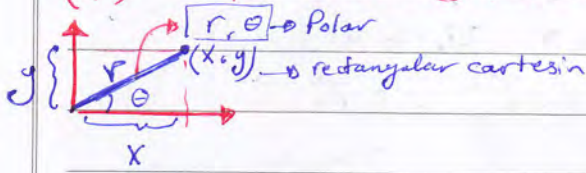 r, θ → Polar
(x, y) → rectangular cartesin
y
r
θ
x